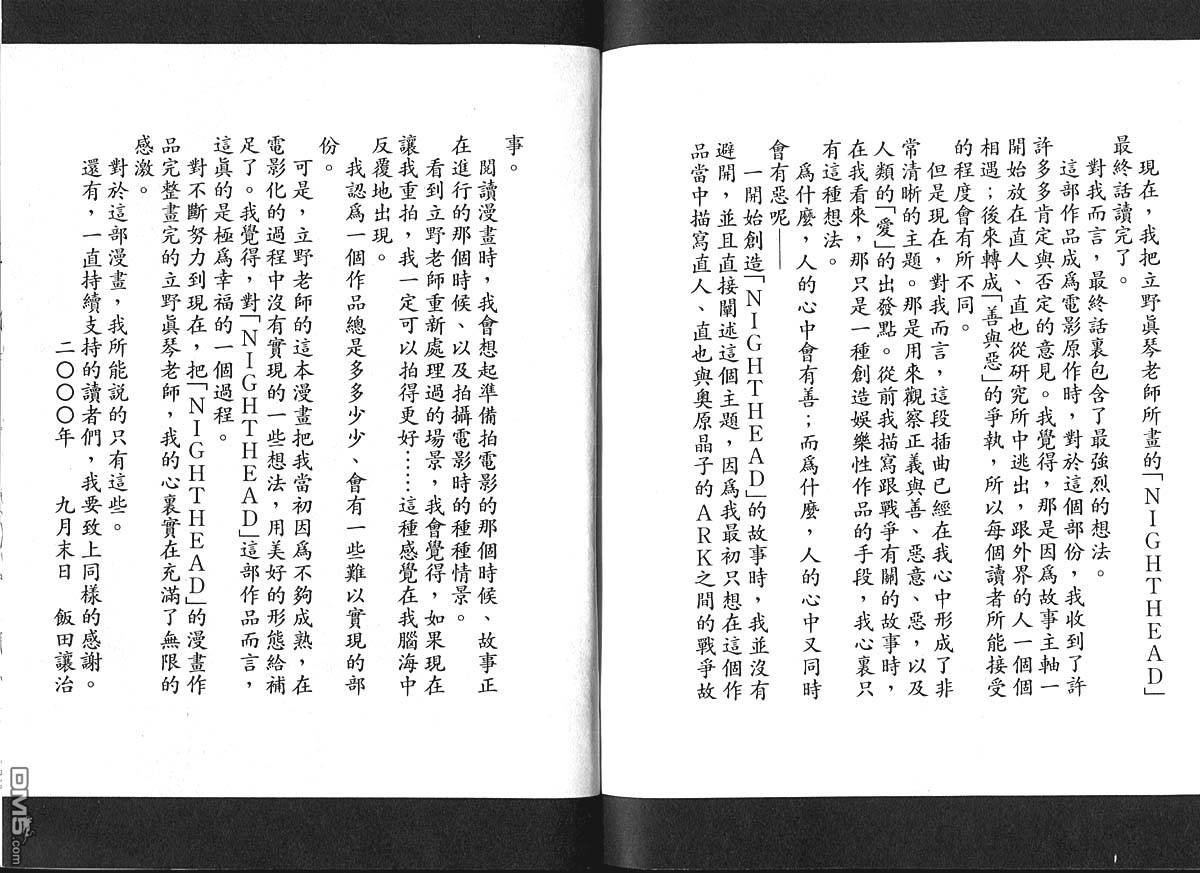 現在，我把立野眞琴老師所畫的「NIGHTHEAD」
最終話讀完了。
對我而言，最終話裏包含了最強烈的想法。
這部作品成爲電影原作時，對於這個部份，我收到了許
許多多肯定與否定的意見。我覺得，那是因爲故事主軸一
開始放在直人、直也從研究所中逃出，跟外界的人一個個
相遇；後來轉成「善與惡」的爭執，所以每個讀者所能接受
的程度會有所不同。
但是現在，對我而言，這段插曲已經在我心中形成了非
常清晰的主題。那是用來觀察正義與善、惡意、惡，以及
人類的「愛」的出發點。從前我描寫跟戰爭有關的故事時，
在我看來，那只是一種創造娛樂性作品的手段，我心裏只
有這種想法。
爲什麼，人的心中會有善；而爲什麼，人的心中又同時
會有惡呢——
一開始創造「NIGHTHEAD」的故事時，我並沒有
避開，並且直接闡述這個主題，因爲我最初只想在這個作
品當中描寫直人、直也與奧原晶子的ARK之間的戰爭故
事。
閱讀漫畫時，我會想起準備拍電影的那個時候、故事正
在進行的那個時候、以及拍攝電影時的種種情景。
看到立野老師重新處理過的場景，我會覺得，如果現在
讓我重拍，我一定可以拍得更好……這種感覺在我腦海中
反覆地出現。
我認爲一個作品總是多多少少、會有一些難以實現的部
份。
可是，立野老師的這本漫畫把我當初因爲不夠成熟，在
電影化的過程中沒有實現的一些想法，用美好的形態給補
足了。我覺得，對「NIGHTHEAD」這部作品而言，
這眞的是極爲幸福的一個過程。
對不斷努力到現在，把「NIGHTHEAD」的漫畫作
品完整畫完的立野眞琴老師，我的心裏實在充滿了無限的
感激。
對於這部漫畫，我所能說的只有這些。
還有，一直持續支持的讀者們，我要致上同樣的感謝。
二〇〇〇年　九月末日　飯田讓治
DM5.com